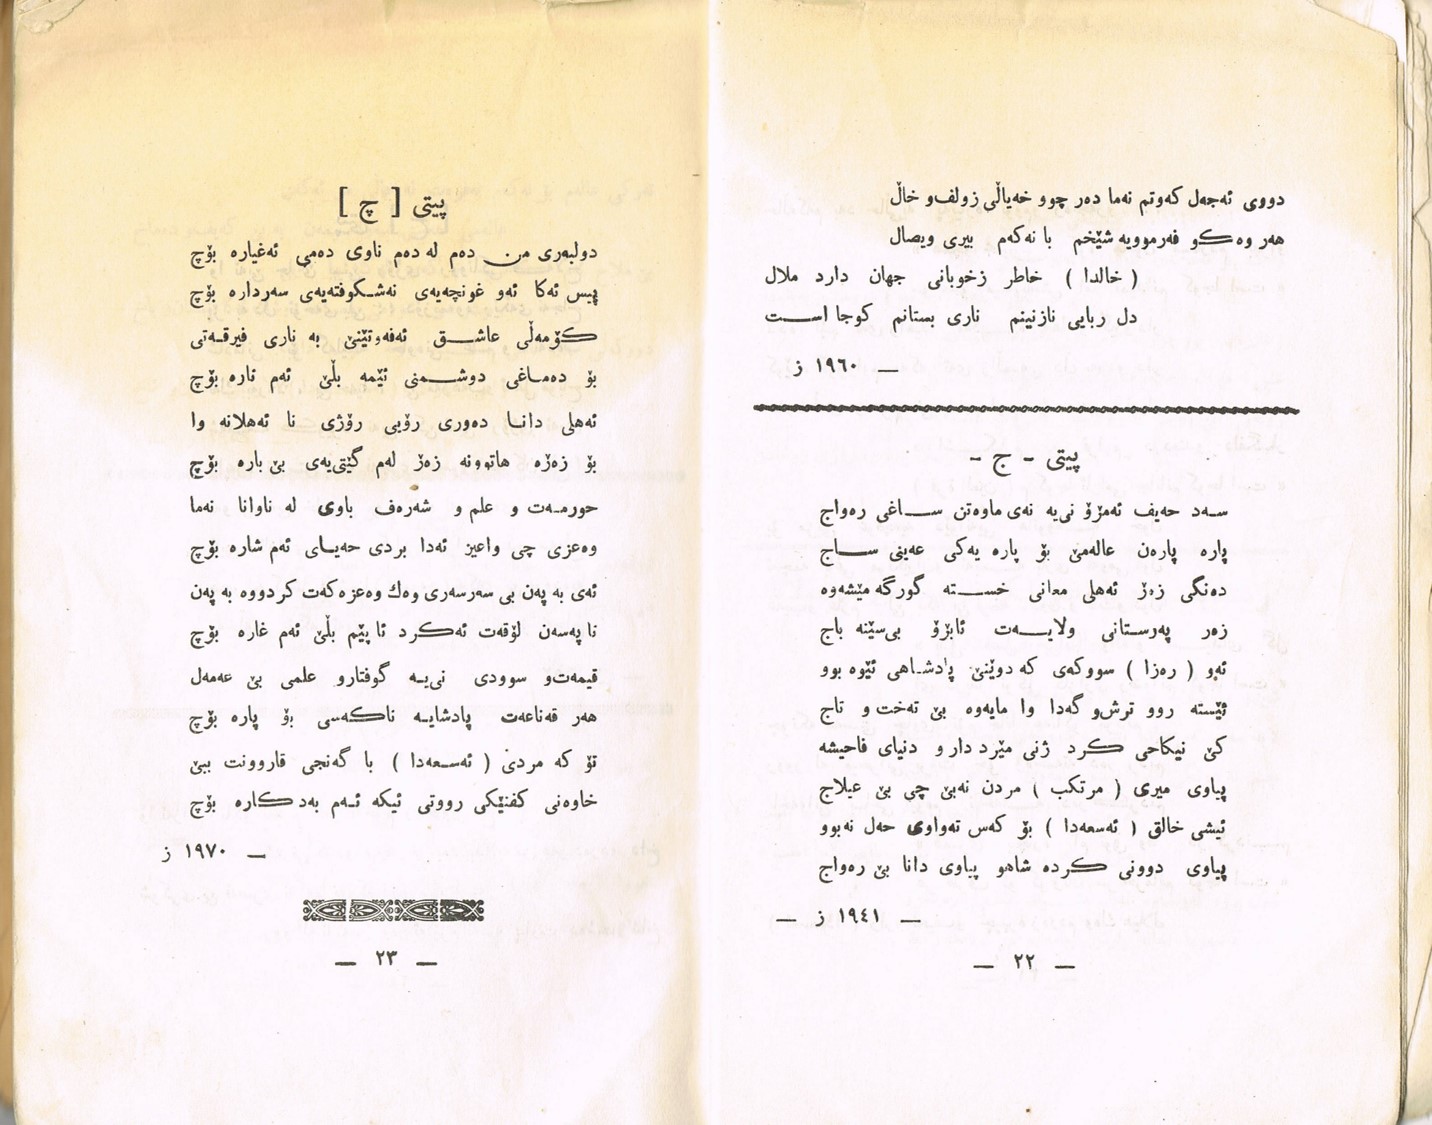 دووی ئەجەل کەوتم نەما دەر چوو خەیاڵی زولف‌و خاڵ
هەر وەکو فەرموویە شێخم با نەکەم بیری ویصال
( خالدا ) خاطر زخوبانی جهان دارد ملال
دل ربایی نازنینم ناری بستانم کوجا است
— ١٩٦٠ ز
پیتی - ج -
سەد حەیف ئەمڕۆ نی‌یە نەی ماوەتن ساغی رەواج
پارە پارەن عالەمێ بۆ پارە یەکی عەینی ساج
دەنگی زەڕ ئەهلی معانی خستە گورگە مێشەوە
زەر پەرستانی ولایەت ئابڕۆ بی‌سێنە باج
ئەو ( رەزا ) سووکەی کە دوێنێ پادشاهی ئێوە بوو
ئێستە روو ترش‌و گەدا وا مایەوە بێ تەخت و تاج
کێ نیکاحی کرد ژنی مێرد دار و دنیای فاحیشە
پیاوی میری ( مرتکب ) مردن نەبێ چی بێ عیلاج
ئیشی خالق ( ئەسعەدا ) بۆ کەس تەواوی حەل نەبوو
پیاوی دوونی کردە شاهو پیاوی دانا بێ رەواج
— ١٩٤١ ز —
— ٢٢ —
پیتی [ چ ]
دولبەری من دەم لە دەم ناوی دەمی ئەغیارە بۆچ
پیس ئەکا ئەو غونچەیەی نەشکوفتەیەی سەردارە بۆچ
کۆمەڵی عاشق ئەفەوتێنێ بە ناری فیرقەتی
بۆ دەماغی دوشمنی ئێمە بڵێ ئەم نارە بۆچ
ئەهلی دانا دەوری رۆیی رۆژی نا ئەهلانە وا
بۆ زەڕە هاتوونە زەڕ لەم گێتی‌یەی بێ بارە بۆچ
حورمەت و علم و شەرەف باوی لە ناوانا نەما
وەعزی چی واعیز ئەدا بردی حەیای ئەم شارە بۆچ
ئەی بە پەن بی سەرسەری وەك وەعزەکەت کردووە بە پەن
ناپەسەن لۆقەت ئەکرد تا پێم بڵێ ئەم غارە بۆچ
قیمەت‌و سوودی نی‌یە گوفتارو علمی بێ عەمەل
هەر قەناعەت پادشایە ناکەسی بۆ پارە بۆچ
تۆ کە مردی ( ئەسعەدا ) با گەنجی قاروونت ببێ
خاوەنی کفنێکی رووتی ئیکە ئەم بەدکارە بۆچ
— ١٩٧٠ ز
— ٢٣ —